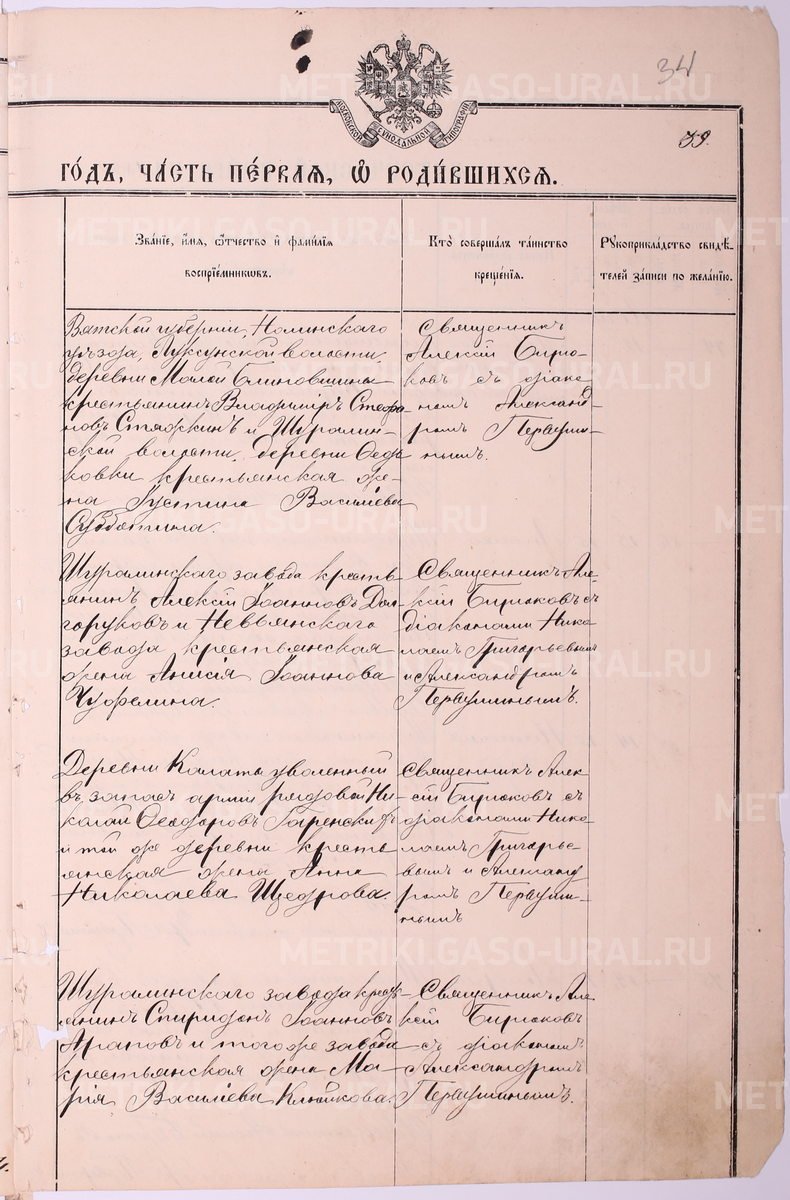 34
39.
МОСКОВСКОЙ СѴНОДАЛЬНОЙ ТИПОГРАФІИ
ГО́ДЪ, ЧА́СТЬ ПЕ́РВАЯ, Ѽ РОДИ́ВШИХСЯ.
Зва́нїе, и́мя, ѻ́тчество и҆ фами́лїя
воспрїе́мникѡвъ.
Кто̀ соверша́лъ та́инство
креще́нїя.
Рꙋкоприкла́дство свидѣ́-
телей за́писи по жела́нїю.
Вятской губерніи, Нолинскаго
уѣзда, волости
деревни Малой Блиновщины
крестьянинъ Владиміръ Стефа
новъ Стяжкинъ и Шуралин-
ской волости, деревни Ѳедь
ковки крестьянская же-
на Іустина Васильева
Субботина.
Священникъ
Алексій Бирю-
ковъ съ діако-
номъ Александ-
ромъ Первуши-
нымъ.
Шуралинскаго завода кресть-
янинъ Алексій Іоанновъ Дол-
горуковъ и Невьянскаго
завода крестьянская
жена Анисія Іоаннова
Чуфелина.
Священникъ Але-
ксій Бирюковъ съ
діаконами Нико-
лаемъ Григорьевымъ
и Александромъ
Первушинымъ.
Деревни Калаты уволенный
въ запасъ арміи рядовой Ни-
колай Ѳеодоровъ
и той же деревни кресть
янская жена Анна
Николаева Щедрова.
Священникъ Алек-
сій Бирюковъ съ
діаконами Нико-
лаемъ Григорье-
вымъ и Александ
ромъ Первуши-
нымъ
Шуралинскаго завода крест-
янинъ Спиридонъ Іоанновъ
Араповъ и того же завода
крестьянская жена Ма-
рія Васильева Клюйкова.
Священникъ Але
ксій Бирюковъ
съ діакономъ
Александромъ
Первушинымъ.
METRIKI.GASO-URAL.RU